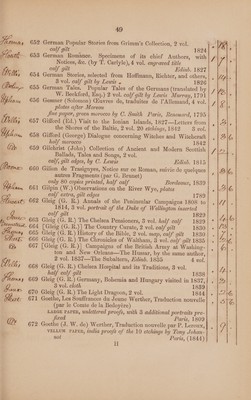 49
652 German Popular Stories from Grimm's Collection, 2 vol.
calf gilt 1824
653 German Romance. Specimens of its chief Authors, with
Notices, &c. (by T. Carlyle), 4 vol. separated titles
calf gilt Edinb. 1827
654 German Stories, selected from Hoffmann, Richter, and others,
3 vol. calf gilt by Lewis 1826
655 German Tales. Popular Tales of the Germans (translated by
W. Beckford, Esq.) 2 vol. calf gilt by Lewis Murray, 1791
656 Gessner (Solomon) Œuvres de, traduites de l'Allemand, 4 vol.
plates after Moreau
fine paper, green morocco by C. Smith Paris, Renouard, 1795
657 Giffard (Ed.) Visit to the Ionian Islands, 1837—Letters from
the Shores of the Baltic, 2 vol. 20 etchings, 1842 3 vol.
658 Gifford (George) Dialogue concerning Witches and Witchcraft
half morocco 1842
659 Gilchrist (John) Collection of Ancient and Modern Scottish
Ballads, Tales and Songs, 2 vol.
calf, gilt edges, by C. Lewis Edinb. 1815
660 Gillon de Trasignyes, Notice sur ce Roman, suivie de quelques
autres Fragments (par G. Brunet)
only 60 copies printed, half calf Bordeaux, 1839
661 Gilpin (W.) Observations on the River Wye, plates
calf extra, gilt edges 1789
662 Gleig (G. R.) Annals of the Peninsular Campaigns 1808 to
1814, 3 vol. portrait of the Duke of Wellington inserted
calf gilt 1829
663 Gleig (G. R.) The Chelsea Pensioners, 3 vol. half calf 1829
664 [Gleig (G. R.)] The Country Curate, 2 vol. calf gilt 1830
665 Gleig (G. R.) History of the Bible, 2 vol. maps, calf gilt 1830
666 Gleig (G. R.) The Chronicles of Waltham, 3 vol. calf gilt 1835
667 Gleig (G. R.) Campaigns of the British Army at Washing-
ton and New Orleans—The Hussar, by the same author,
2 vol. 1837—The Subaltern, Edinb. 1835 4 vol.
668 Gleig (G. R.) Chelsea Hospital and its Traditions, 3 vol.
half calf gilt 1838
669 Gleig (G. R.) Germany, Bohemia and Hungary visited in 1837,
3 vol. cloth 1839
670 Gleig (G. R.) The Light Dragoon, 2 vol. 1844
671 Goethe, Les Souffrances du Jeune Werther, Traduction nouvelle
(par le Comte de la Bedoyère)
LARGE PAPER, unlettered proofs, with 3 additional portraits pre-
fixed Paris, 1809
672 Goethe (J. W. de) Werther, Traduction nouvelle par P. Leroux,
VELLUM PAPER, india proofs of the 10 etchings by Tony Johan-
not Paris, (1844)
H